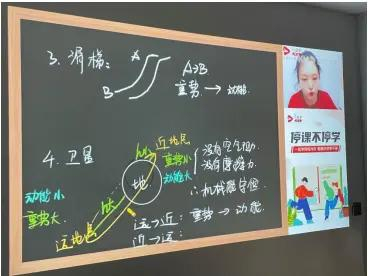 3. 滑梯:
A
B
A→B
重势 → 动能
4. 卫星
近地点
重势小
动能大
没有空气阻力
没有摩擦力
∴机械能守恒
地
动能小
重势大
远地点
远→近: 重势 → 动能
近→远:
停课不停学